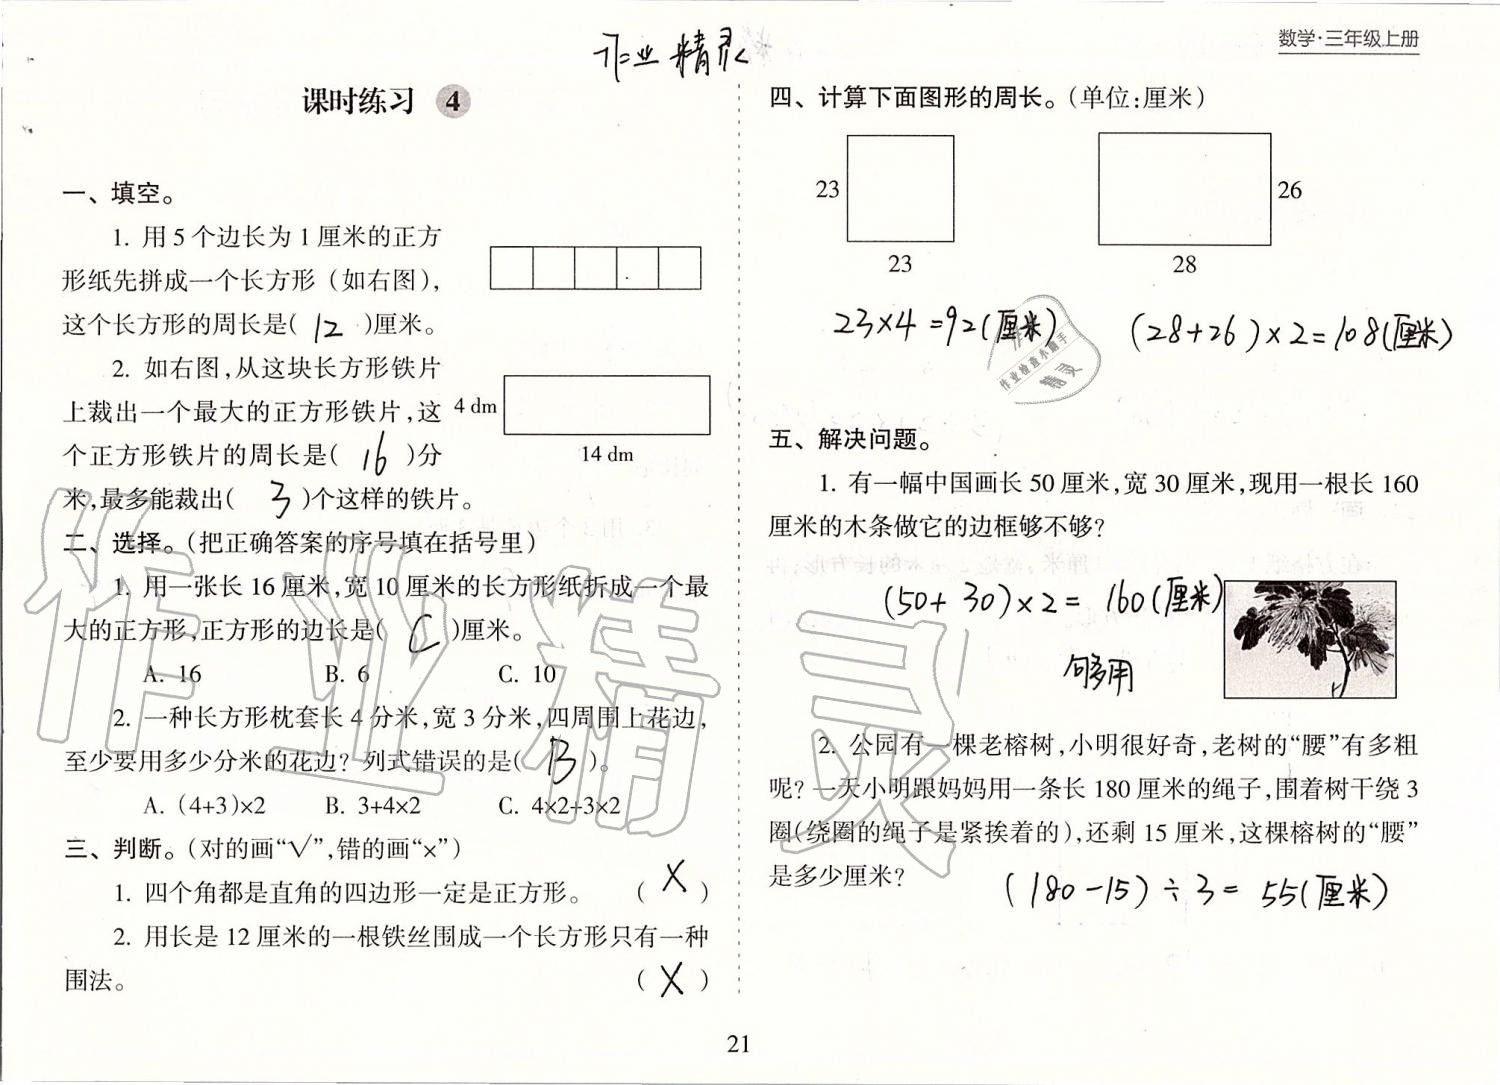 作业精灵
数学·三年级上册
课时练习 4
一、填空。
1. 用5个边长为1厘米的正方
形纸先拼成一个长方形（如右图），
这个长方形的周长是( 12 )厘米。
2. 如右图，从这块长方形铁片
上裁出一个最大的正方形铁片，这
4 dm
个正方形铁片的周长是( 16 )分
14 dm
米，最多能裁出( 3 )个这样的铁片。
二、选择。（把正确答案的序号填在括号里）
1. 用一张长16厘米，宽10厘米的长方形纸折成一个最
大的正方形，正方形的边长是( C )厘米。
A. 16 B. 6 C. 10
2. 一种长方形枕套长4分米，宽3分米，四周围上花边，
至少要用多少分米的花边？列式错误的是( B )。
A. (4+3)×2 B. 3+4×2 C. 4×2+3×2
三、判断。（对的画“√”，错的画“×”）
1. 四个角都是直角的四边形一定是正方形。 ( X )
2. 用长是12厘米的一根铁丝围成一个长方形只有一种
围法。 ( X )
四、计算下面图形的周长。（单位：厘米）
23 26
23 28
23×4=92(厘米) (28+26)×2=108(厘米)
作业检查小助手
精灵
五、解决问题。
1. 有一幅中国画长50厘米，宽30厘米，现用一根长160
厘米的木条做它的边框够不够？
(50+30)×2= 160(厘米)
够用
2. 公园有一棵老榕树，小明很好奇，老树的“腰”有多粗
呢？一天小明跟妈妈用一条长180厘米的绳子，围着树干绕3
圈（绕圈的绳子是紧挨着的），还剩15厘米，这棵榕树的“腰”
是多少厘米？
(180-15)÷3= 55(厘米)
作业精灵
21